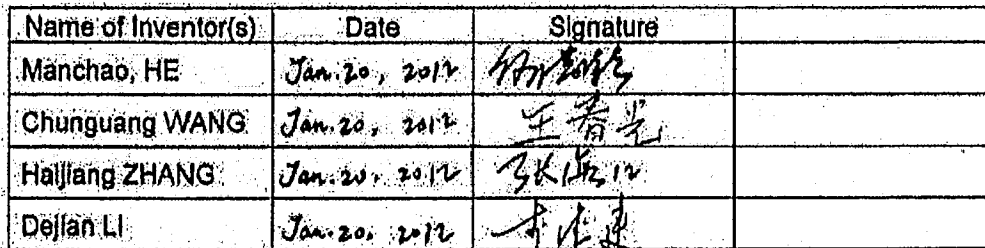 Name of Inventor(s) Date Signature
Manchao, HE Jan. 20, 2012
Chunguang WANG Jan. 20, 2012 王春光
Haijiang ZHANG Jan. 20, 2012 张海江
Dejian LI Jan. 20, 2012